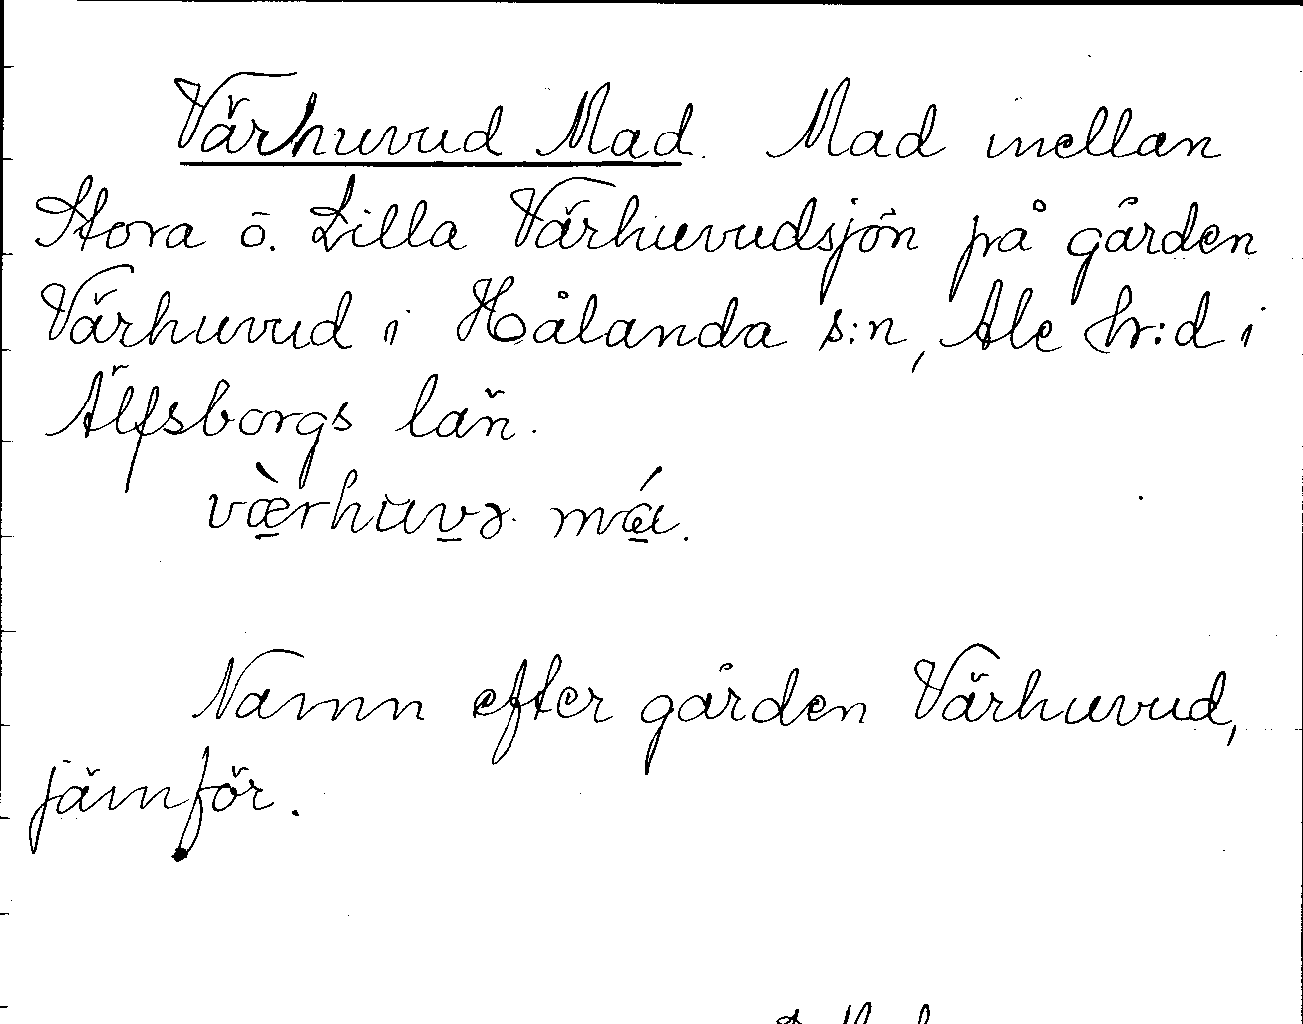 Värhuvud Mad. Mad mellan
Stora o. Lilla Värhuvudsjön på gården
Värhuvud i Hålanda s:n, Ale hr:d i
Älfsborgs län.
væ̀rhuvə má.
Namn efter gården Värhuvud,
jämför.